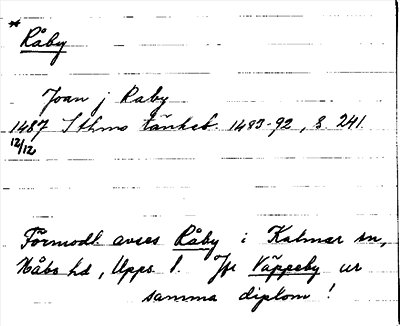 *
Råby
Joan j Raby
1487 Sthms tänkeb. 1483-92, s. 241.
12/12
Förmodl. avses Råby i Kalmar sn,
Håbo hd, Upps. l. Jfr Väppeby ur
samma diplom!